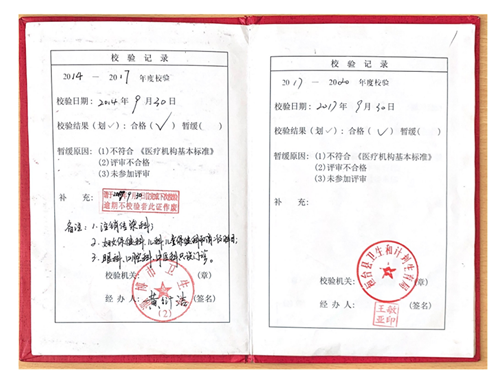 校验记录
2014 — 2017 年度校验
校验日期：2014 年 9 月 30 日
校验结果(划✓)：合格(✓) 暂缓( )
暂缓原因：(1)不符合《医疗机构基本标准》
(2)评审不合格
(3)未参加评审
补 充：
逾期不校验者此证作废
备注：1.注销传染科；
3.眼科、口腔科、中医科只设门诊。
校验机关： (章)
经办人： (签名)
(2)
校验记录
2017 — 2020 年度校验
校验日期：2017 年 9 月 30 日
校验结果(划✓)：合格(✓) 暂缓( )
暂缓原因：(1)不符合《医疗机构基本标准》
(2)评审不合格
(3)未参加评审
补 充：
桓台县卫生和计划生育局
校验机关： (章)
经办人： (签名)
王敏
亚印